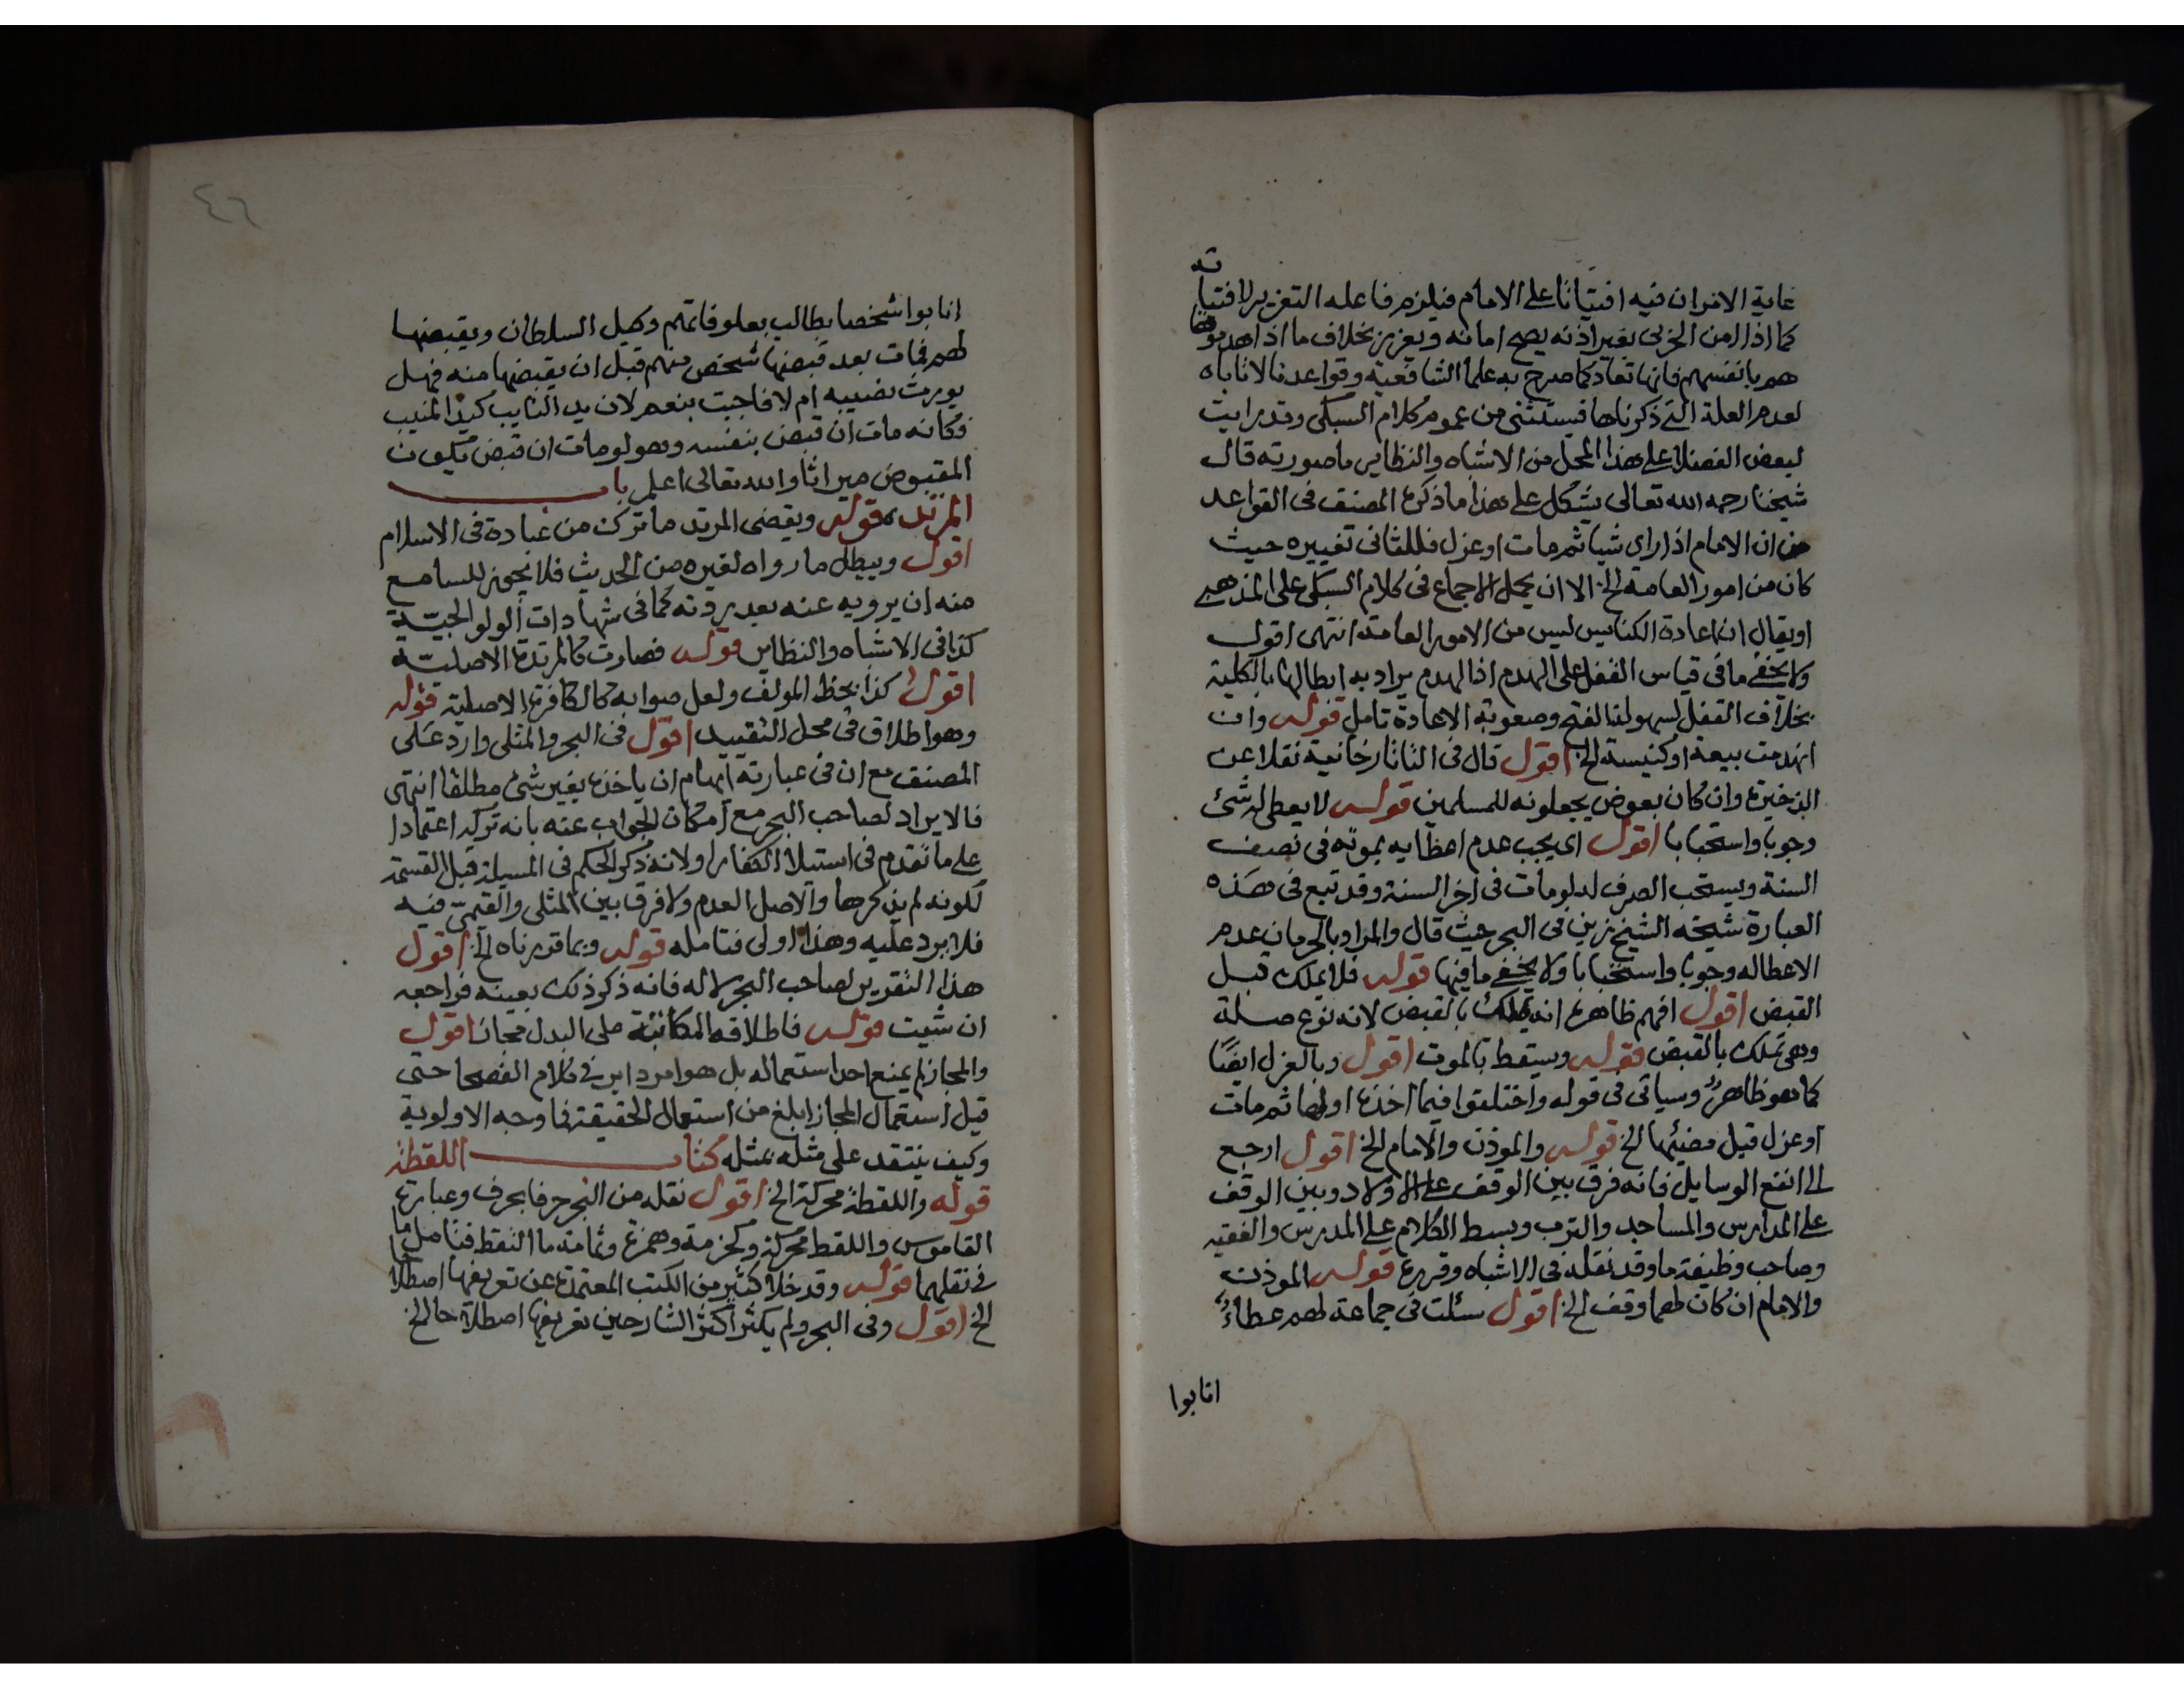 غاية الامر ان فيه افتياتا على الامام فيلزم فاعله التعزير لافتياته
كما اذا امن الحربى بغير اذنه يصح امانه ويعزر بخلاف ما اذا هدموها
هم بانفسهم فانها تعاد كما صرح به علما الشافعية وقواعدنا لا تاباه
لعدم العلة التى ذكرناها فيستثنى من عموم كلام السبكى وقد رايت
لبعض الفضلا على هذا المحل من الاشباه والنظاير ما صورته قال
شيخنا رحمه الله تعالى يشكل على هذا ما ذكره المصنف فى القواعد
من ان الامام اذا راى شيا ثم مات او عزل فللثانى تغييره حيث
كان من امور العامة الخ الا ان يحمل الاجماع فى كلام السبكى على المذهبى
او يقال ان اعادة الكنايس ليس من الامور العامة انتهى اقول
ولا يخفى ما فى قياس القفل على الهدم اذ الهدم يراد به ابطالها بالكلية
بخلاف القفل لسهولة الفتح وصعوبة الاعادة تامل قوله وان
انهدمت بيعة او كنيسة الخ اقول قال فى التاتارخانية نقلا عن
الذخيرة وان كان بعوض يجعلونه للمسلمين قوله لا يعطى له شئ
وجوبا واستحبابا اقول اى يجب عدم اعطايه بموته فى نصف
السنة ويستحب الصرف له لو مات فى اخر السنة وقد تبع فى هذه
العبارة شيخه الشيخ زين فى البحر حيث قال والمراد بالحرمان عدم
الاعطا له وجوبا واستحبابا ولا يخفى ما فيها قوله فلا يملك قبل
القبض اقول افهم ظاهره انه يملك بالقبض لانه نوع صلة
وهى تملك بالقبض قوله ويسقط بالموت اقول وبالعزل ايضًا
كما هو ظاهر وسياتى فى قوله واختلفوا فيما اخذه اولها ثم مات
او عزل قبل مضيها الخ قوله والموذن والامام الخ اقول ارجع
الى انفع الوسايل فانه فرق بين الوقف على الاولاد وبين الوقف
على المدارس والمساجد والترب وبسط الكلام على المدرس والفقيه
وصاحب وظيفة ما وقد نقله فى الاشباه وقرره قوله الموذن
والامام ان كان لهما وقف الخ اقول سئلت فى جماعة لهم عطاءٌ
انابوا
٤٦
انابوا شخصا يطالب بعلوفاتهم وكيل السلطان ويقبضها
لهم فمات بعد قبضها شخص منهم قبل ان يقبضها منه فهل
يورث نصيبه ام لا فاجبت بنعم لان يد النايب كيد المنيب
فكانه مات ان قبض بنفسه وهو لو مات ان قبض يكون
المقبوض ميراثا والله تعالى اعلم باب
المرتد قوله ويقضى المرتد ما ترك من عبادة فى الاسلام
اقول ويبطل ما رواه لغيره من الحديث فلا يجوز للسامع
منه ان يرويه عنه بعد ردته كما فى شهادات الولوالجية
كذا فى الاشباه والنظاير قوله فصارت كالمرتدة الاصلية
اقول كذا بخط المولف ولعل صوابه كالكافرة الاصلية قوله
وهو اطلاق فى محل التقييد اقول فى البحر والمثلى وارد على
المصنف مع ان فى عبارته ايهام ان ياخذه بغير شئ مطلقا انتهى
فالايراد لصاحب البحر مع امكان الجواب عنه بانه تركه اعتمادا
على ما تقدم فى استيلاء الكفار او لانه ذكر الحكم فى المسيلة قبل القسمة
لكونه لم يذكرها والاصل العدم ولا فرق بين المثلى والقيمى فيه
فلا يرد عليه وهذا اولى فتامله قوله وبما قررناه الخ اقول
هذا التقرير لصاحب البحر لا له فانه ذكر ذلك بعينه فراجعه
ان شيت قوله فاطلاقه المكاتبة على البدل مجاز اقول
والمجاز لم يمنع احد استعماله بل هو امر داير فى كلام الفصحا حتى
قيل استعمال المجاز ابلغ من استعمال الحقيقة فما وجه الاولوية
وكيف ينتقد على مثله بمثله كتاب اللقطة
قوله واللقطة محركة الخ اقول نقله من البحر حرفا بحرف وعبارة
القاموس واللقط محركة وكحزمة وهمزة وثمامة ما التقط فتامل ما
فى نقلهما قوله وقد خلا كثير من الكتب المعتمدة عن تعريفها اصطلاحا
الخ اقول وفى البحر ولم يكثر اكثر الشارحين تعريفها اصطلاحا الخ